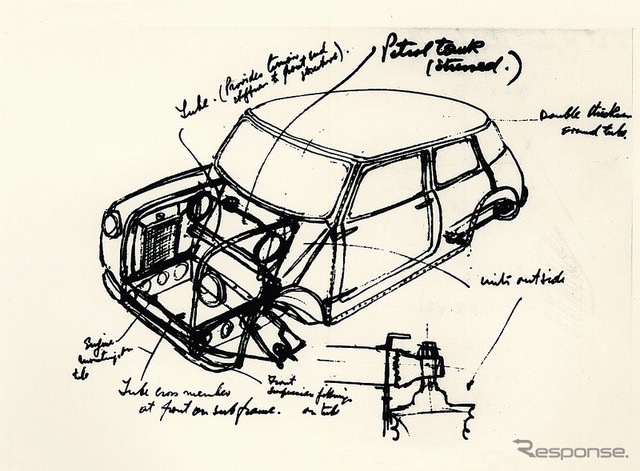 Petrol tank
(stressed.)
Tube. (Provides torsion and
stiffness to front end
structure).
Double thickness
around tube.
units outside
Engine
mounting on
tube
Tube cross member
at front on subframe.
Front
Suspension fittings
on tube
Response.